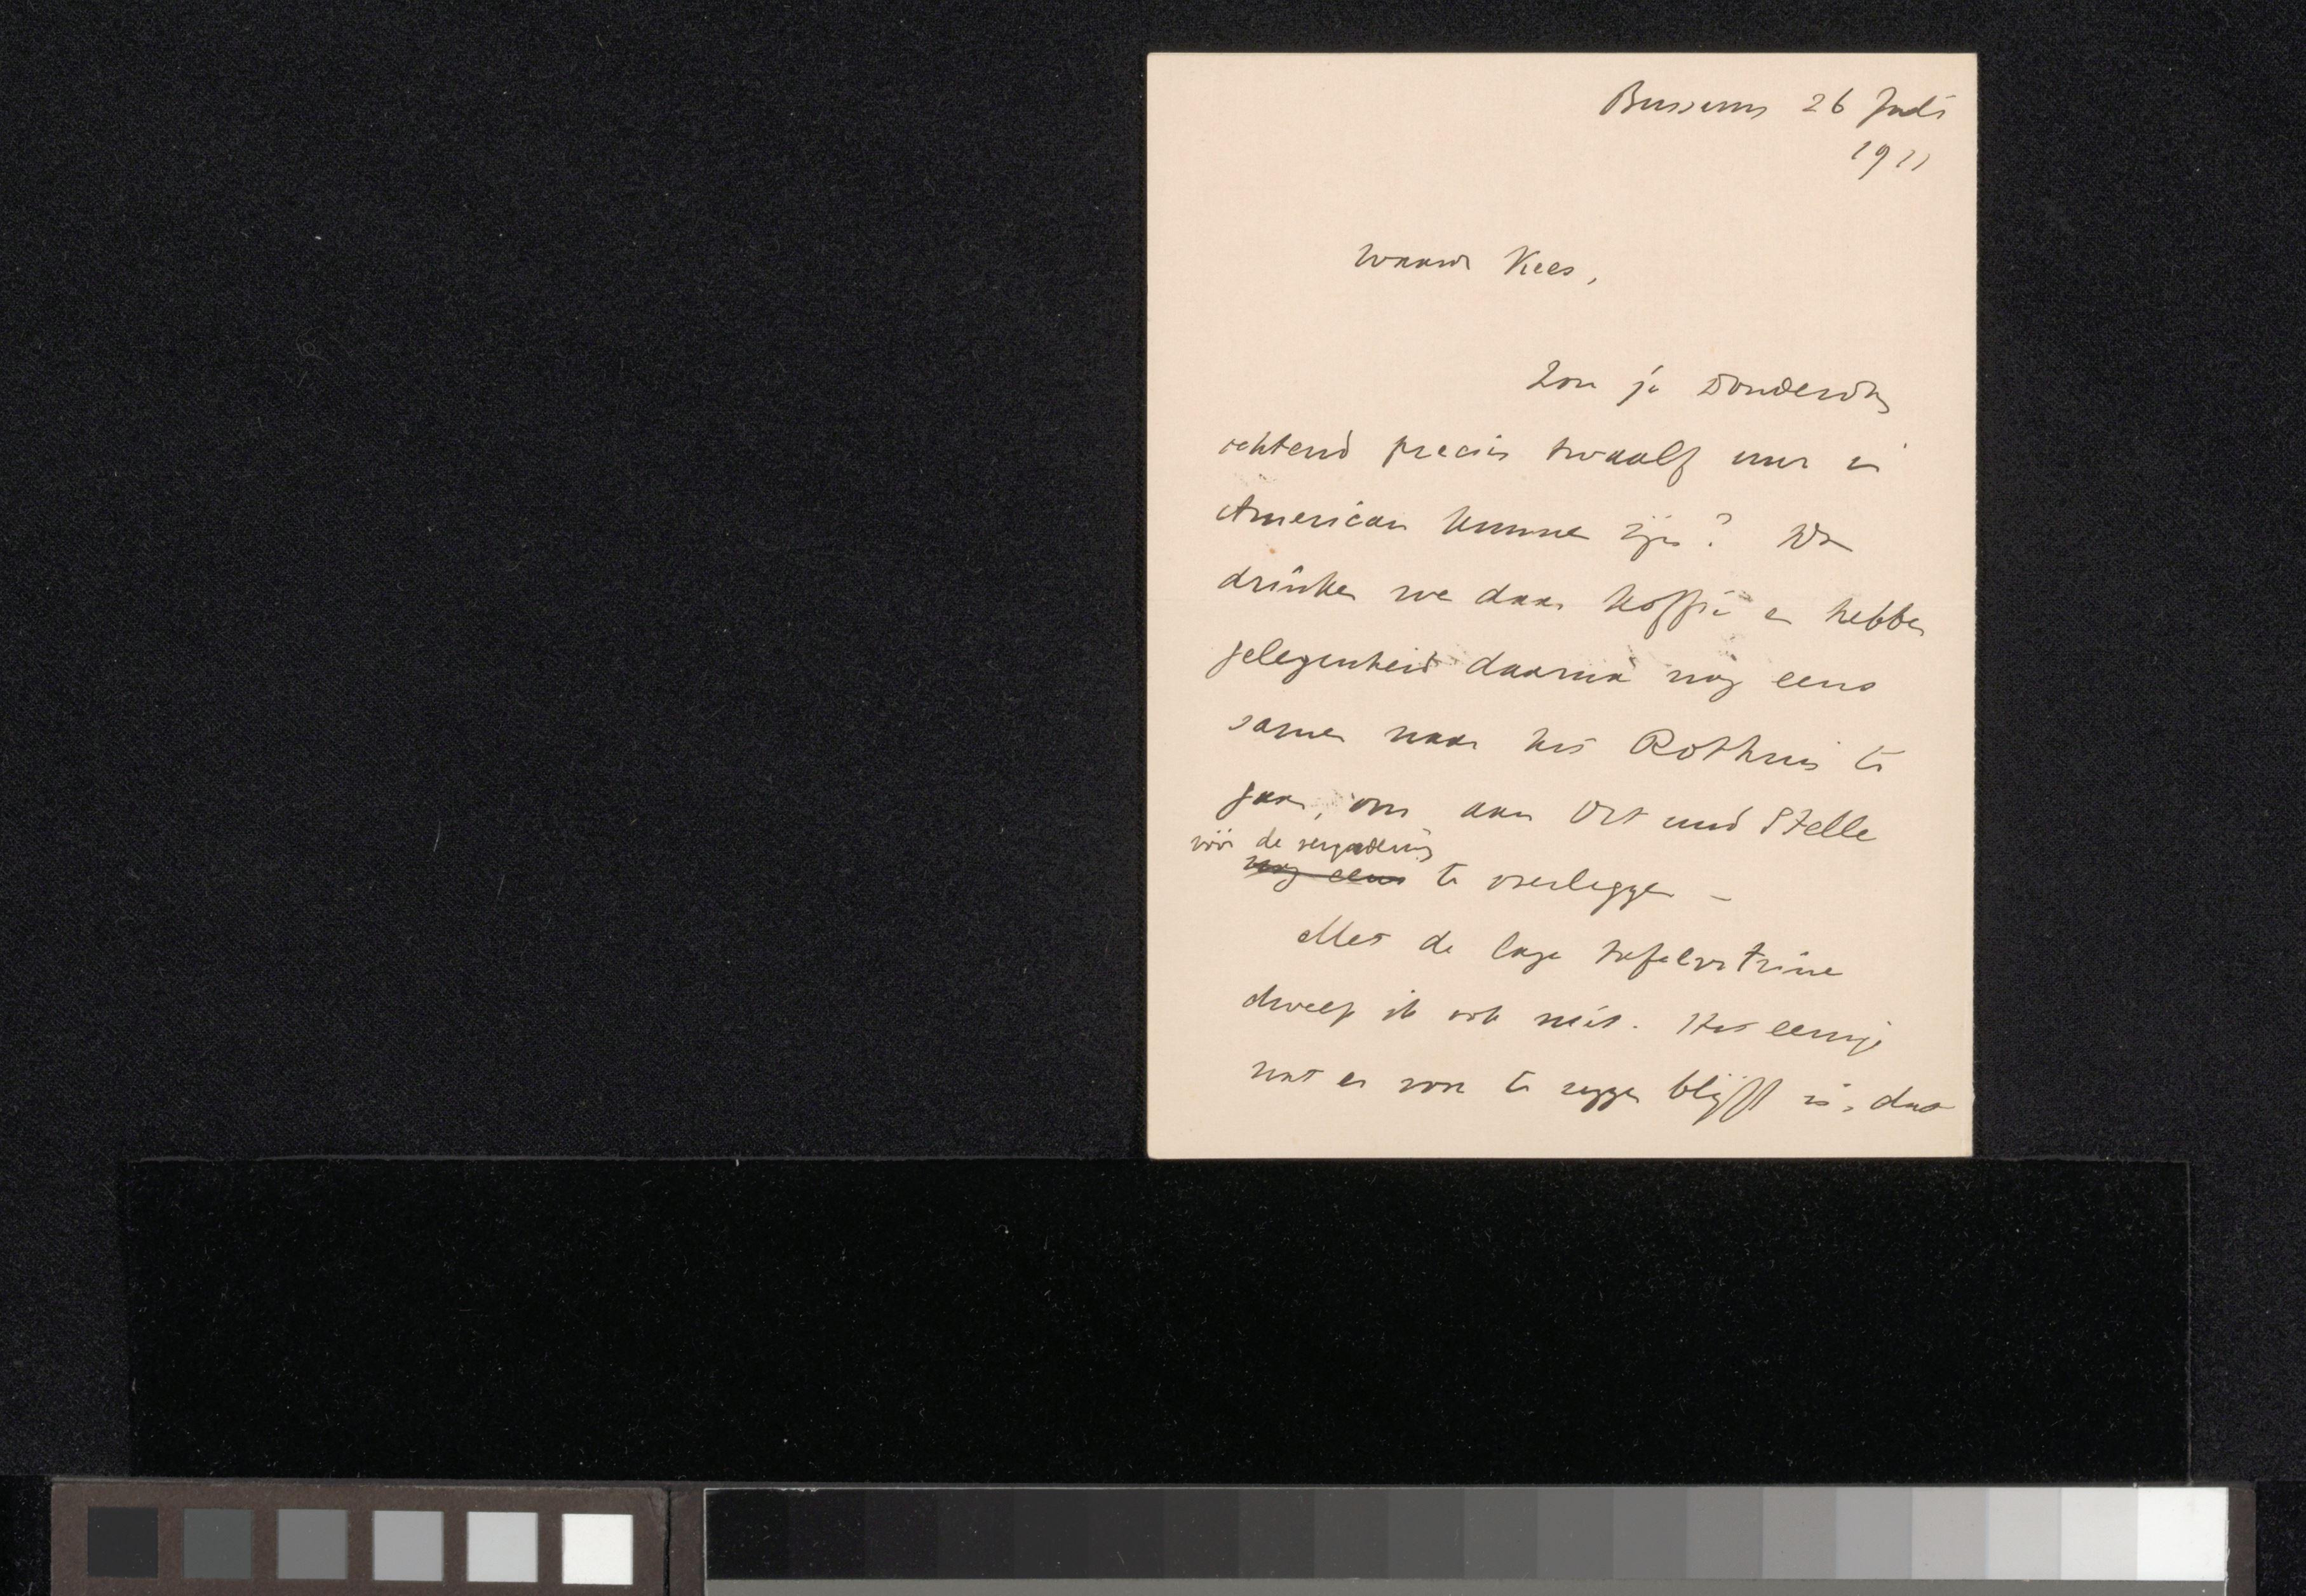 Bussum 26 Juli
1911
Waarde Kees,
Zou je Donderdag
ochtend precies twaalf uur in
American kunnen zijn? Dan
drinken we daar koffie en hebben
gelegenheid daarna nog eens
samen naar het Rothuis te
gaan, om aan Ort und Stelle
vóór de vergadering
nog eens te overleggen –
Met de lage tafelvitrine
dweep ik ook niet. Het eenige
wat er voor te zeggen blijft is, dat